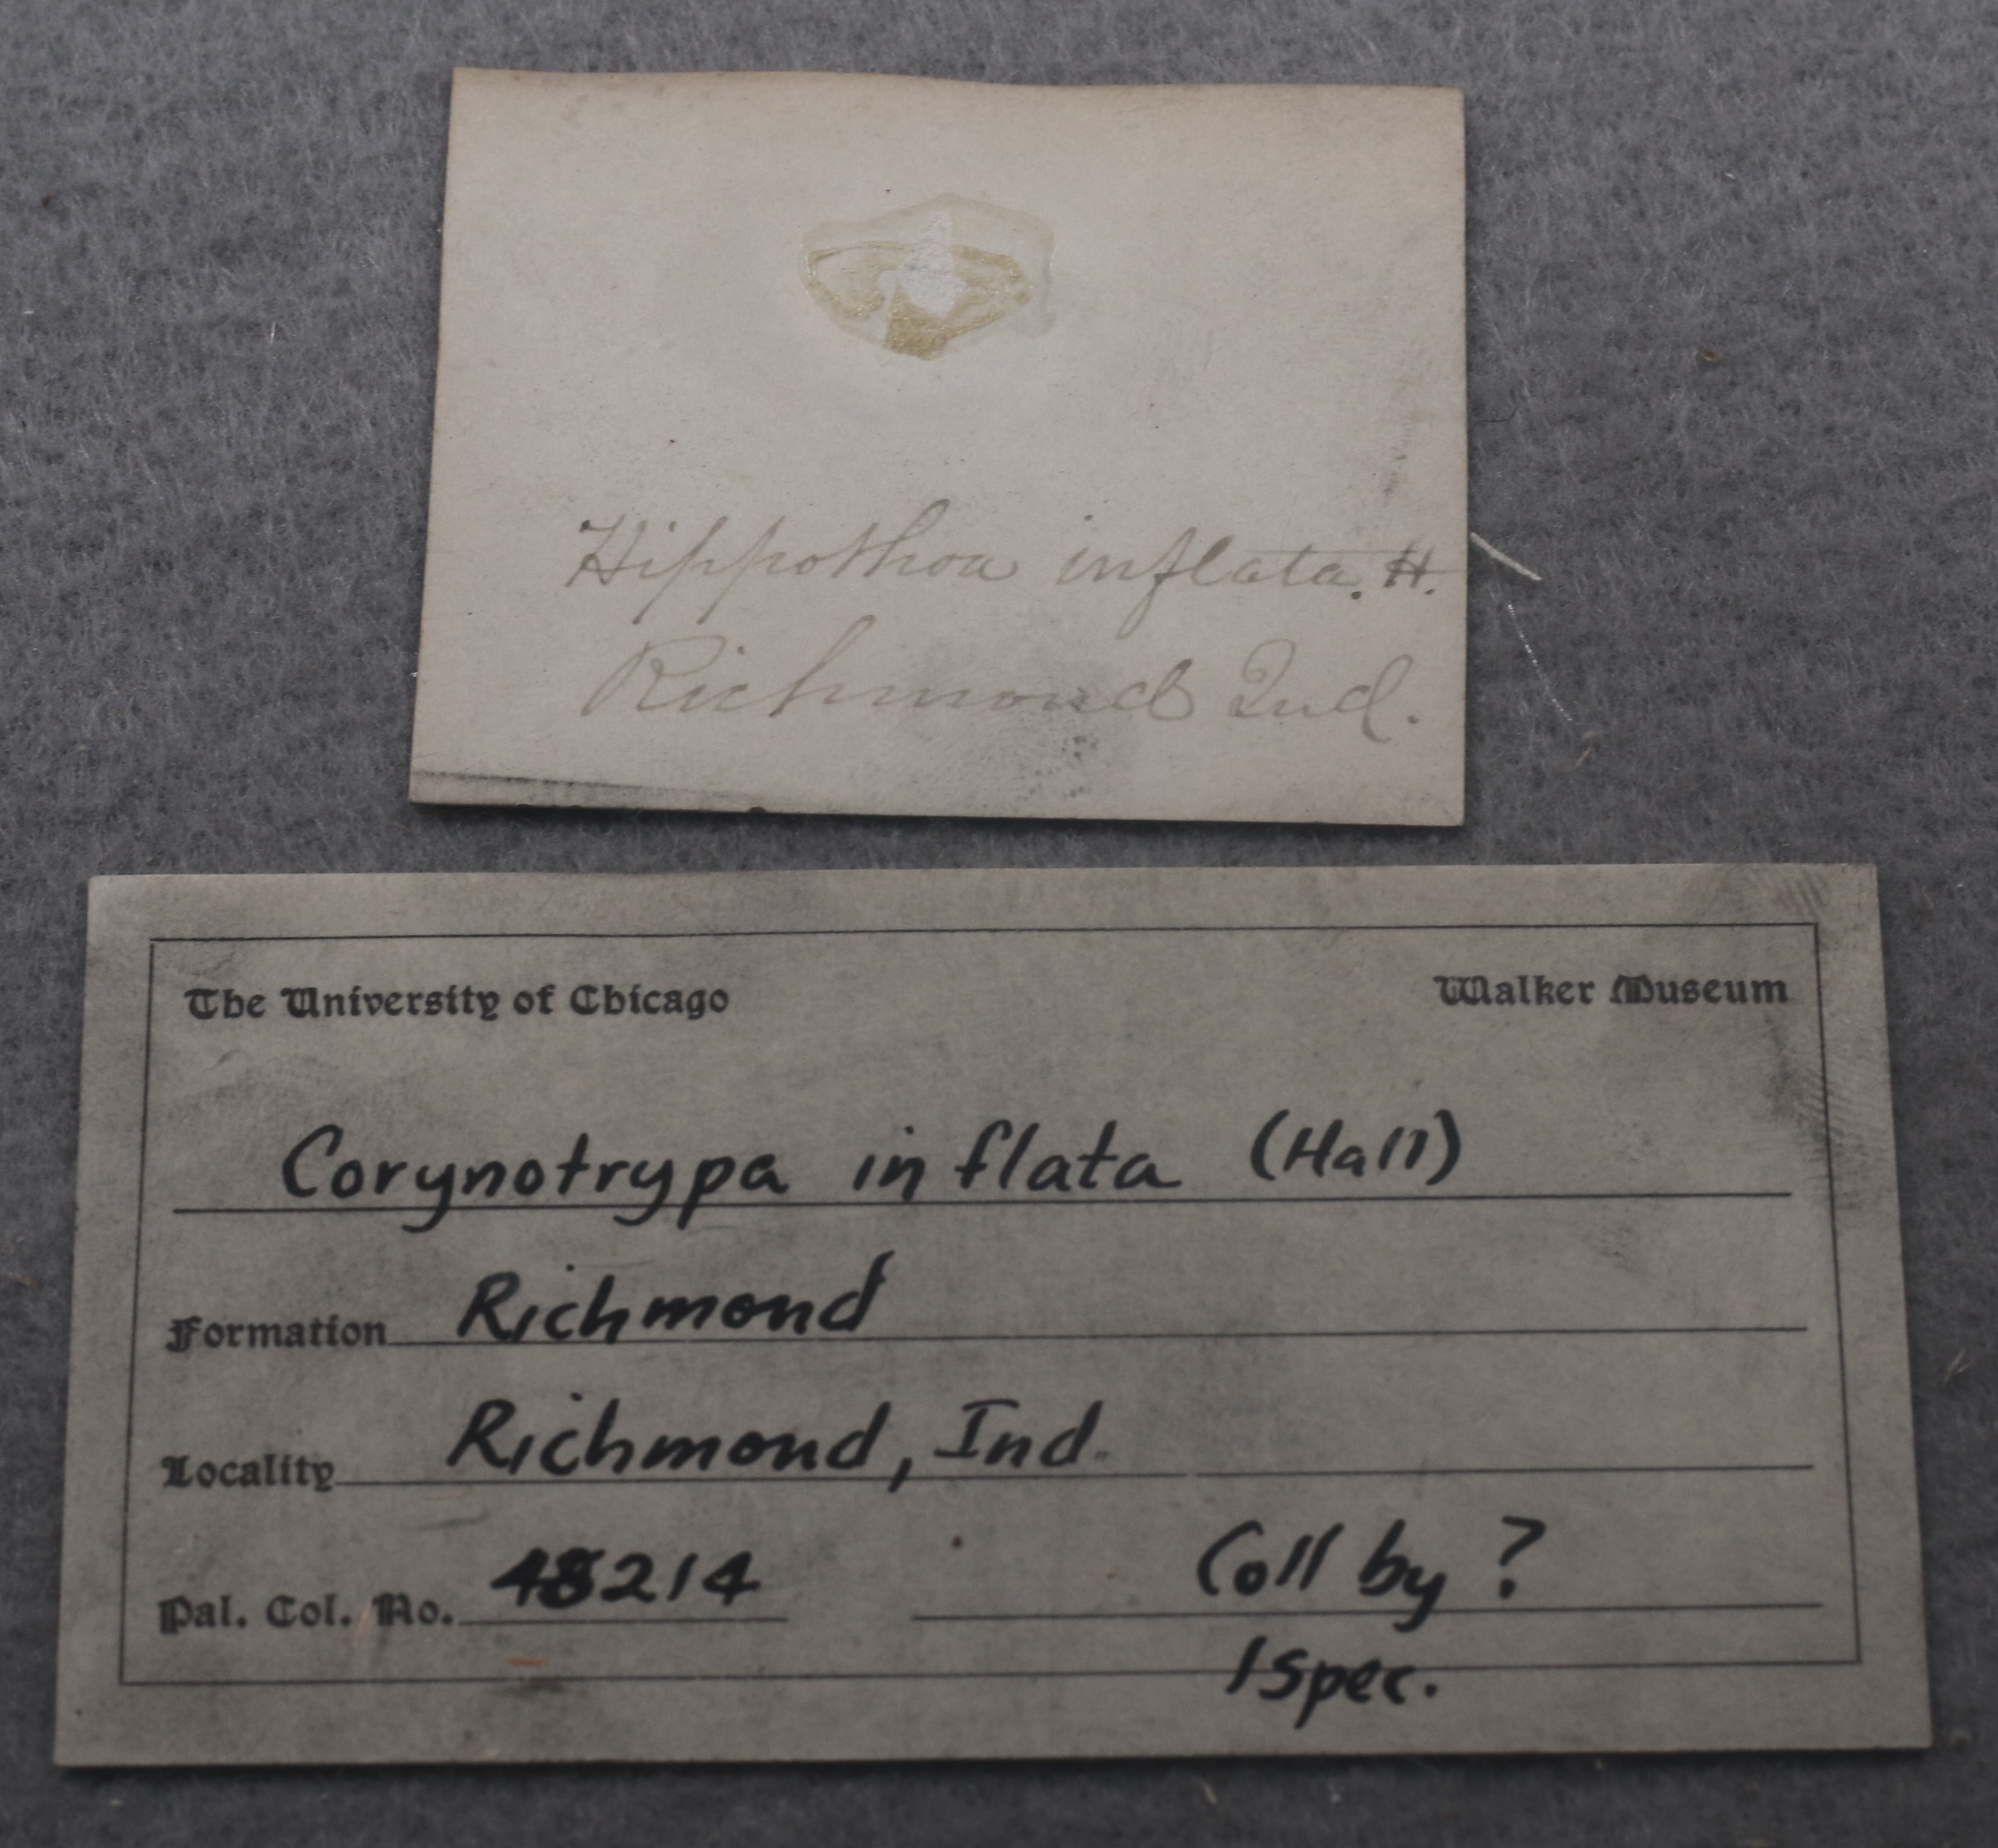 Hippothoa inflata. H.
Richmond Ind.
The University of Chicago Walker Museum
Corynotrypa inflata (Hall)
Formation Richmond
Locality Richmond, Ind.
Pal. Col. No. 48214 Coll by ?
1 spec.